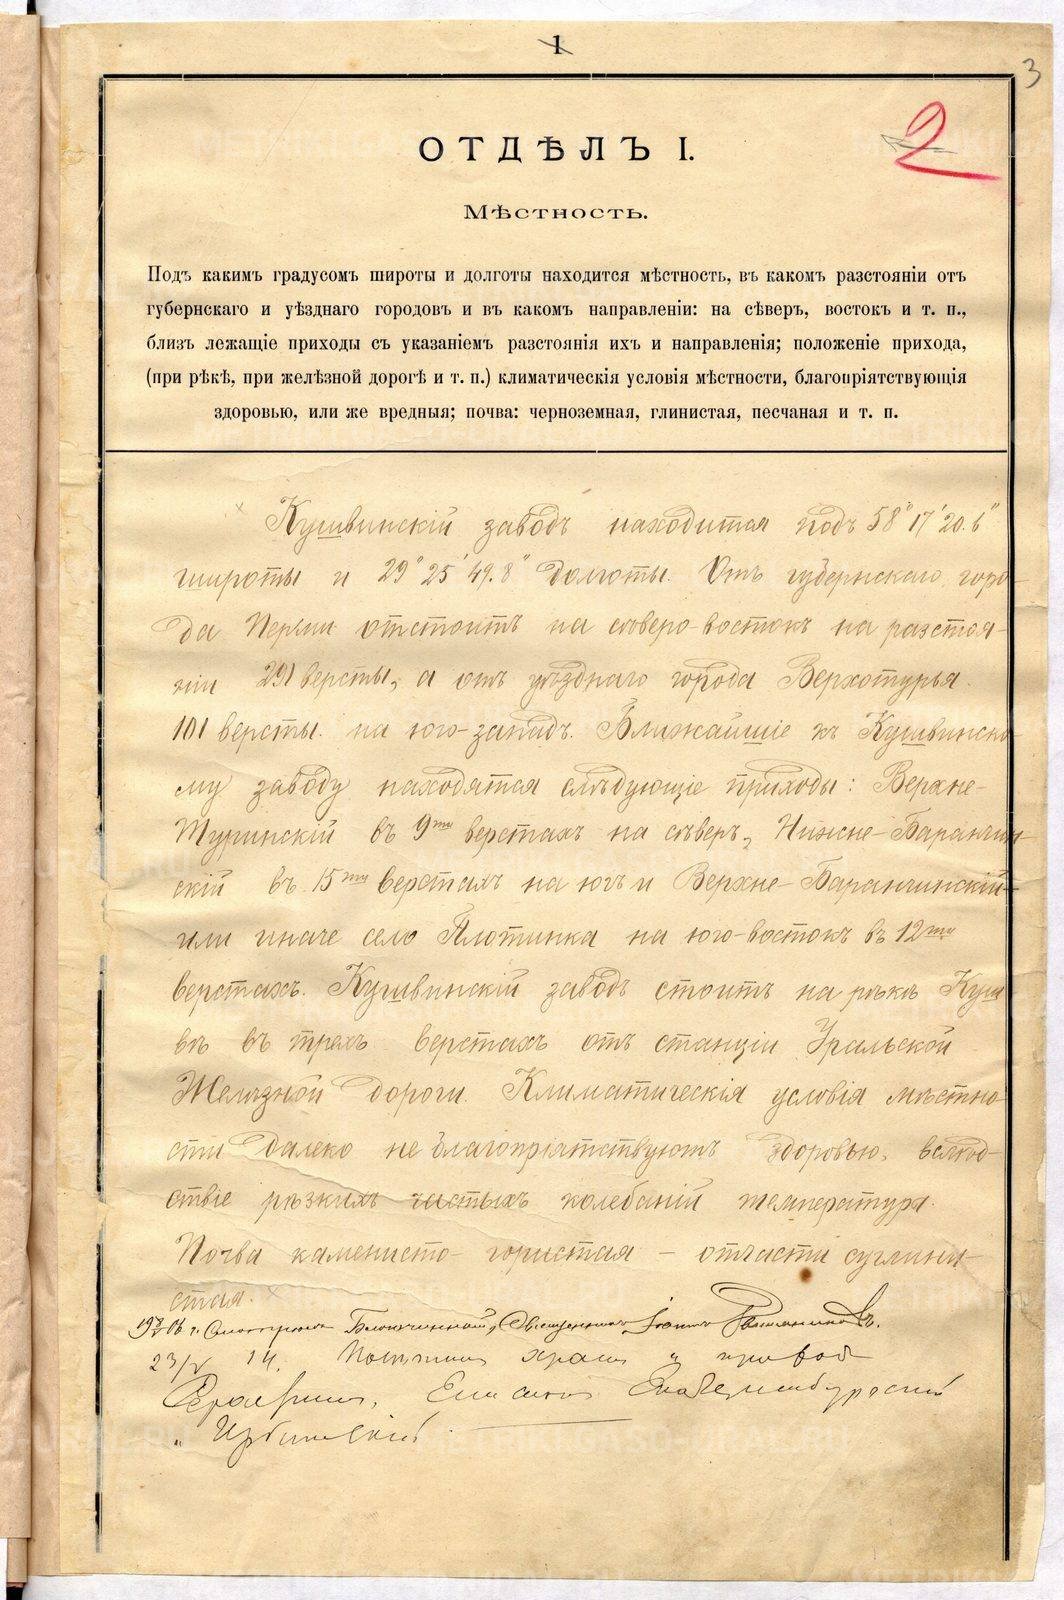 1
3
2
ОТДѢЛЪ I.
Мѣстность.
Подъ какимъ градусомъ широты и долготы находится мѣстность, въ какомъ разстояніи отъ
губернскаго и уѣзднаго городовъ и въ какомъ направленіи: на сѣверъ, востокъ и т. п.,
близъ лежащіе приходы съ указаніемъ разстоянія ихъ и направленія; положеніе прихода,
(при рѣкѣ, при желѣзной дорогѣ и т. п.) климатическія условія мѣстности, благопріятствующія
здоровью, или же вредныя; почва: черноземная, глинистая, песчаная и т. п.
Кушвинскій заводъ находится подъ 58° 17' 20.6"
широты и 29° 25' 49.8" долготы. Отъ губернскаго горо-
да Перми отстоитъ на сѣверо-востокъ на разстоя-
ніи 291 версты, а отъ уѣзднаго города Верхотурья
101 версты на юго-западъ. Ближайшіе къ Кушвинско-
му заводу находятся слѣдующіе приходы: Верхне-
Туринскій въ 9ти верстахъ на сѣверъ, Нижне-Баранчин-
скій въ 15ти верстахъ на югъ и Верхне-Баранчинскій-
или иначе село Плотинка на юго-востокъ въ 12ти
верстахъ. Кушвинскій заводъ стоитъ на рѣкѣ Куш
вѣ въ трехъ верстахъ отъ станціи Уральской
Желѣзной дороги. Климатическія условія мѣстно-
сти далеко не благопріятствуютъ здоровью, вслѣд-
ствіе рѣзкихъ частыхъ колебаній температура.
Почва каменисто-гористая - отчасти суглини-
стая.
Благочинный, Священникъ
23/V 14. храмъ и
Серафимъ, Епископъ Екатеринбургскій
и Ирбитскій.